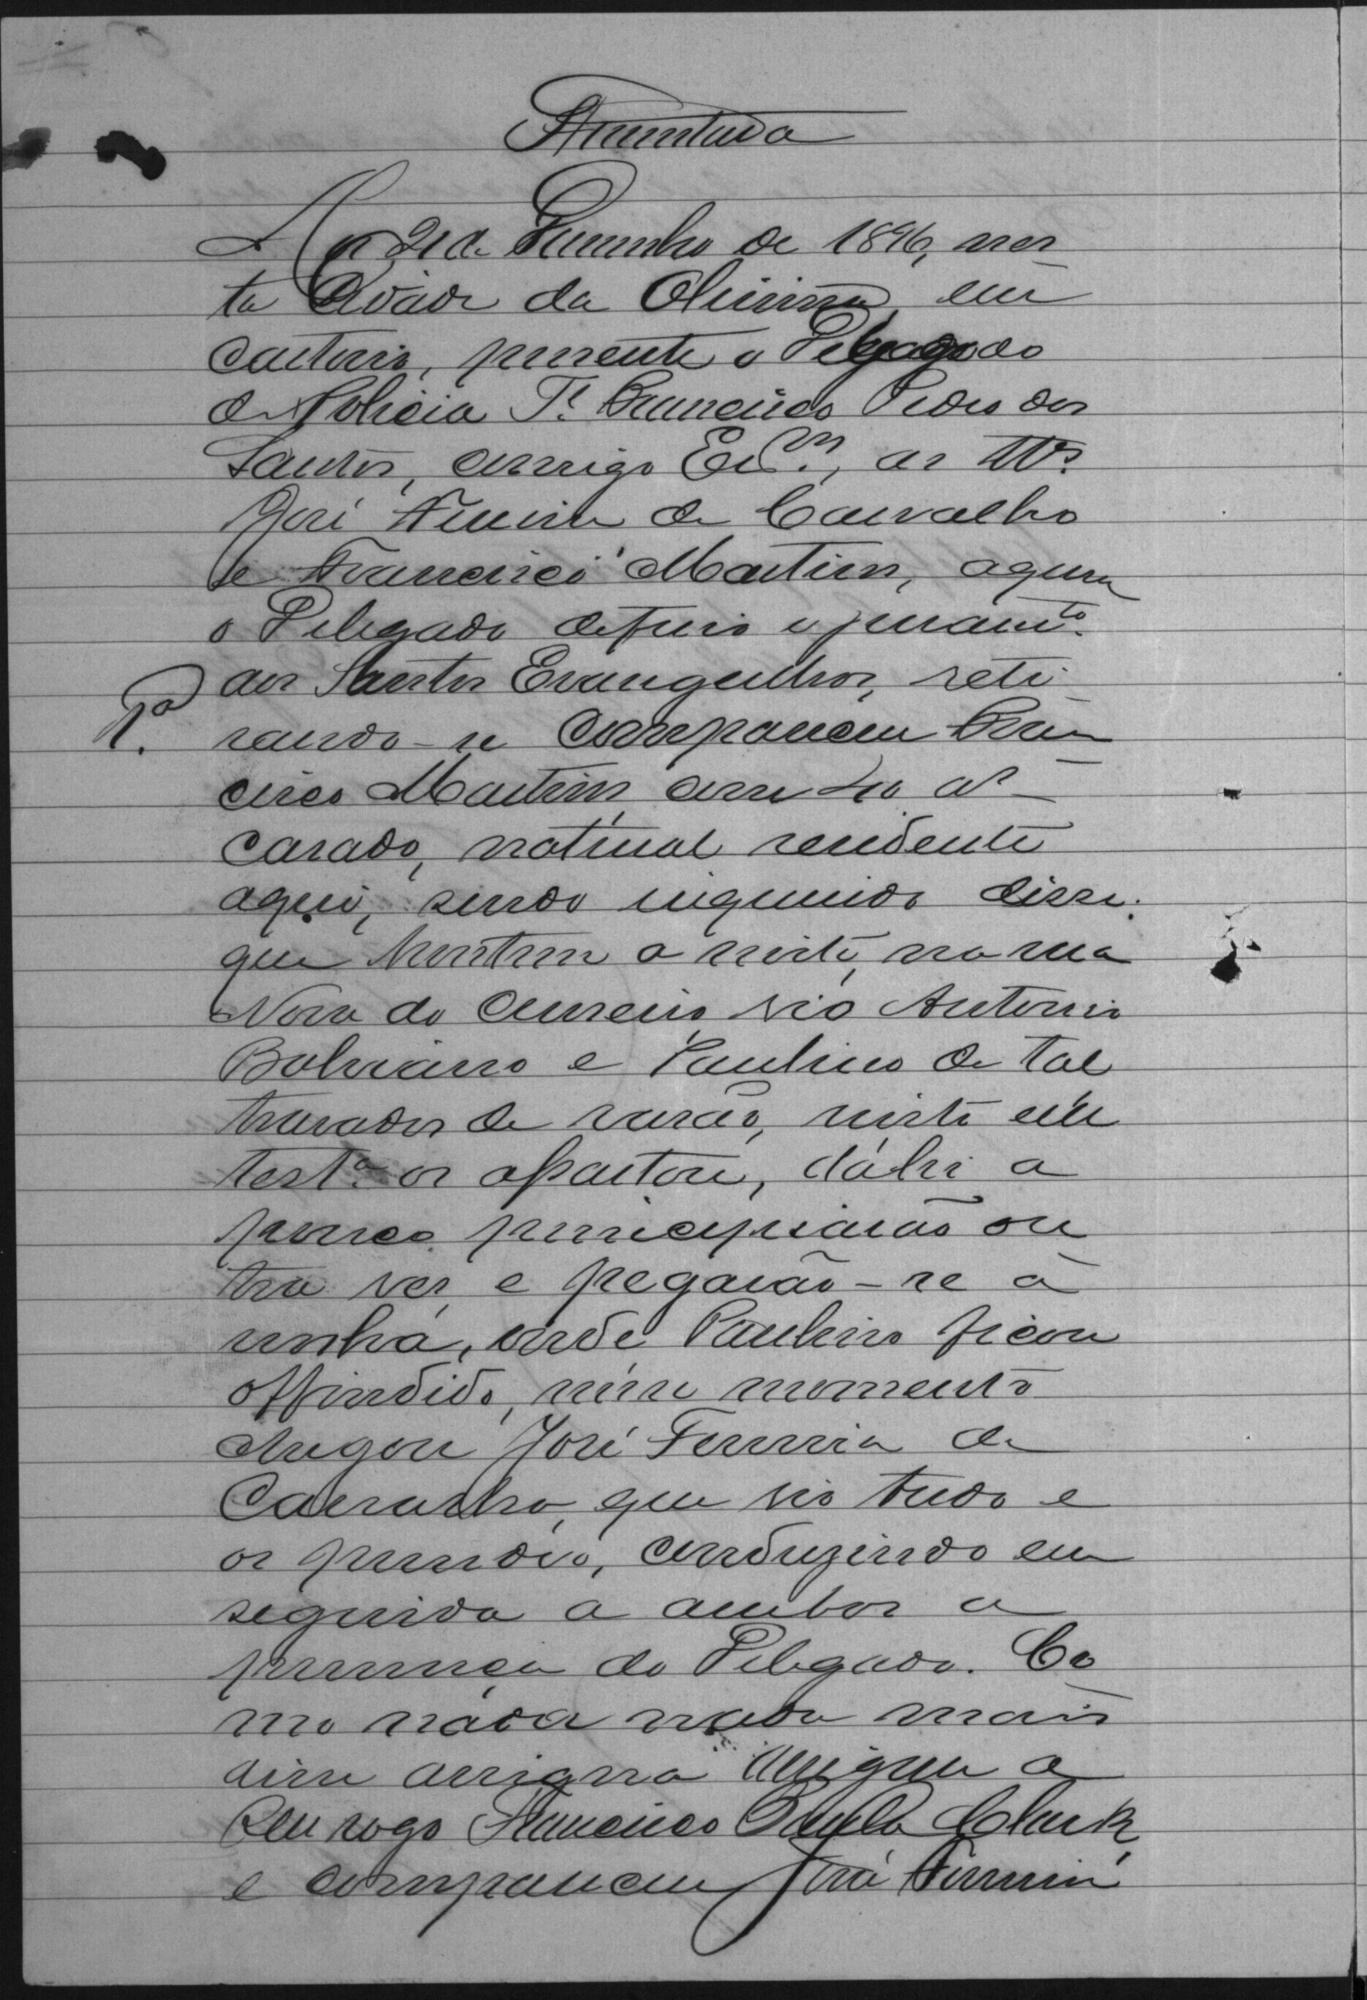 Assentada
Aos 21 de Dezembro de 1896, nes
ta Cidade da Oliveira, em
cartorio, presente o Delegado
de Policia Te. Francisco Pedro dos
Santos, comigo Escm., as ttas.
José Ferreira de Carvalho
e Francisco Martins, aquem
o Delegado deferio o juramto.
aos Santos Evangelhos, reti
1a. rando-se compareceu Fran
cisco Martins com 40 as
casado, natural residente
aqui, sendo inquerido disse:
que hontem a noite, na rua
Nova do Curreio, vio Antonio
Boliviano e Paulino de tal
travados de rasão, nisto elle
testa. os apartou, dáhi a
pouco principiarão ou
tra vez e pegarão-se á
unha, onde Paulino ficou
offendido, nesse momento
chegou José Ferreira de
Carvalho, que vio tudo e
os prendeo, conduzindo em
seguida a ambos a
presença do Delegado. Co
mo nada nada mais
disse assigna assigna a
seu rogo Francisco Paula
e compareceu José Ferreira